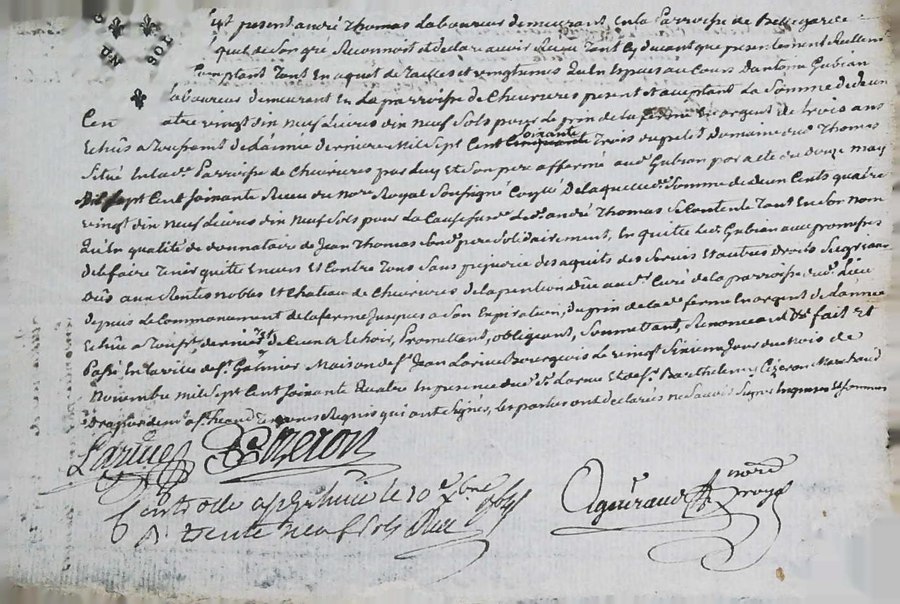 UN SOL
Est present andré Thomas Laboureur demeurant en la Parroisse de Bellegarde
quel de Son gré Reconnoit et declare avoir Reçeu Tant cy devant que presentement Reellem
Comptant Tant En aquet de Tailles et vingtiemes qu'En Especes au Cours D'antoine Gubian
Laboureur demeurant En La parroisse de Cheurieres present et aceptant La Somme de deux
Cen atre vingt dix Neuf Livres dix neuf Sols pour Le prix de la ferme En argent de trois ans
Echûs a Toussaint de L'année derniere Mil Sept Cent cinquante Soixante Trois du petit Domaine dud. Thomas
Situé En lad. Parroisse de Cheurieres par Luy et Son pere affermé aud. Gubian par acte du Douze may
Mil Sept Cent Soixante Receu du No.re Royal Soussigné De laquelle d. Somme de deux Cents quatre
vingt dix Neuf Livres dix Neuf Sols pour La Cause Sus d. Led. andré Thomas Se Contente Tant En Son nom
Qu'En qualité de donnataire de Jean Thomas Sond. pere Solidairement, En quitte Led. Gubian avec promesses
de le faire Tenir quitte Envers Et Contre Tous Sans prejudice des aquits des Servis Et autres Droits Seigneur
Dûs aux Rentes nobles Et Chateau de Cheurieres de la pention Dûe aud. Sr Curé de la parroisse dud. Lieu
depuis Le Commancement de la ferme Jusques a Son Expiration, du prix de la d. ferme En argent de L'année
Echûe a Touss.t dernier Et de Ceux a Echoir, Promettant, obligeant, Soumettant, Renonceant &c fait Et
Passé En la ville de St Galmier Maison de Sr Jean Larue Bourgeois Le vingt Sixieme Jour du Mois de
Novembre Mil Sept Cent Soixante Quatre En presence dud. Sr Larue Et de Sr Barthelemy Cizeron Marchand
Drapier demt a St heand Temoins Requis qui ont Signés, Les parties ont declarées ne Sçavoir Signer Enquises Et Sommées
Larue Cizeron
Controllé a St G le 10 xbre 1764
R. trente neuf Sols
Agniraud nore royal